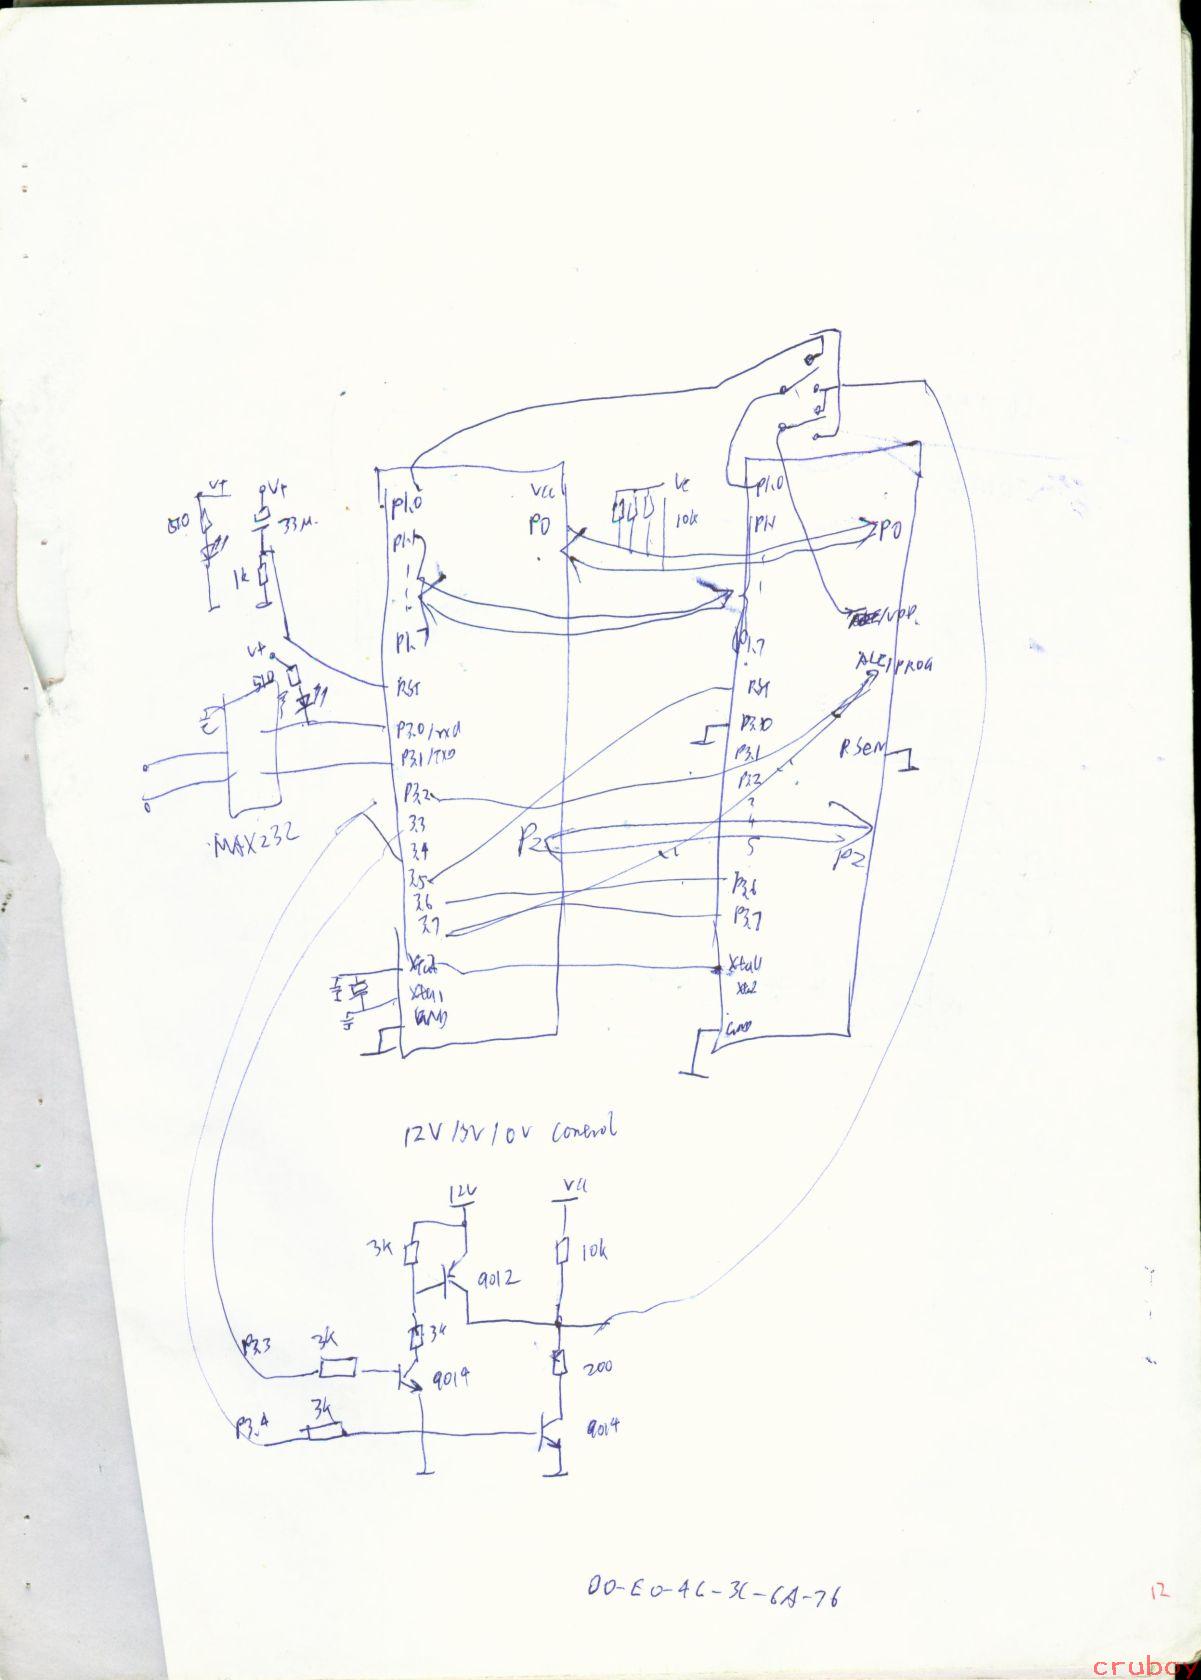 V+
V+
510
33μ.
1k
P1.0
VCC
P1.1
P0
1
1
P1.7
VC
10k
P1.0
P1.1
1
1
P0
P1.7
/VPP.
ALE/PROG
V+
510
RST
P3.0/rxd
P3.1/TXD
P3.2
3.3
3.4
3.5
3.6
3.7
MAX232
RST
P3.1
P3.2
3
4
5
P3.6
P3.7
P2
P2
Xtal2
Xtal1
GND
Xtal1
Xtal2
GND
12V/5V/0V control
12V
3k
9012
3k
9014
VCC
10k
200
9014
P3.3
3k
P3.4
3k
00-E0-4C-3C-6A-76
12
cruboy